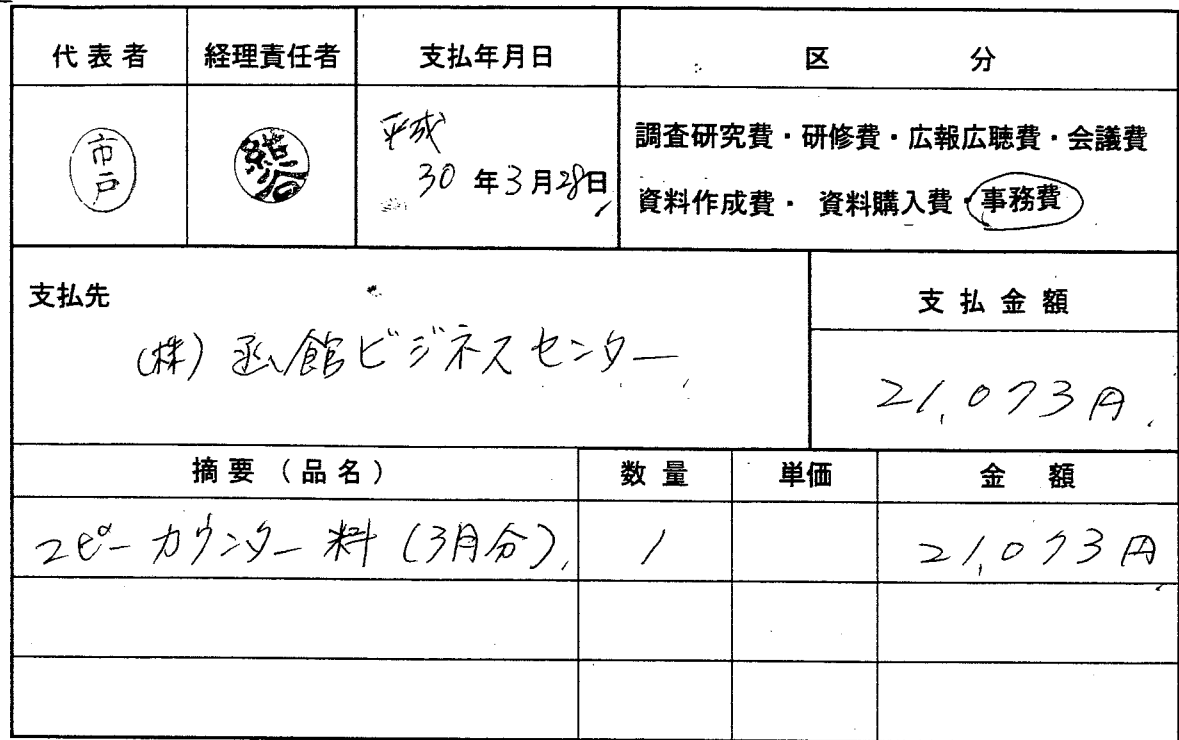 代表者 経理責任者 支払年月日 区 分
市戸
平成
30年3月28日
調査研究費・研修費・広報広聴費・会議費
資料作成費・ 資料購入費・事務費
支払先
支払金額
(株)函館ビジネスセンター
21,073円
摘要(品名) 数量 単価 金 額
コピーカウンター料(3月分) 1 21,073円